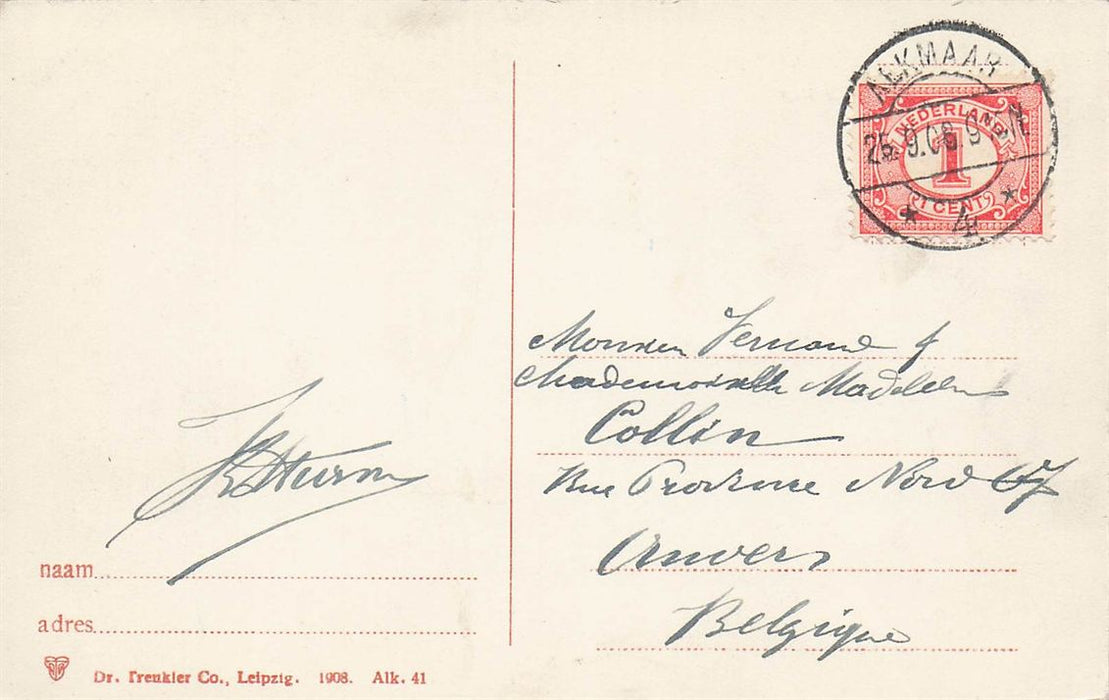 ALKMAAR
25.9.08.9
4
NEDERLAND
1
1 CENT
Monsieur Fernand &
Mademoiselle Madeleine
Collin
Rue Province Nord 67
Anvers
Belgique
Sturm
naam
adres
Dr. Trenkler Co., Leipzig. 1908. Alk. 41